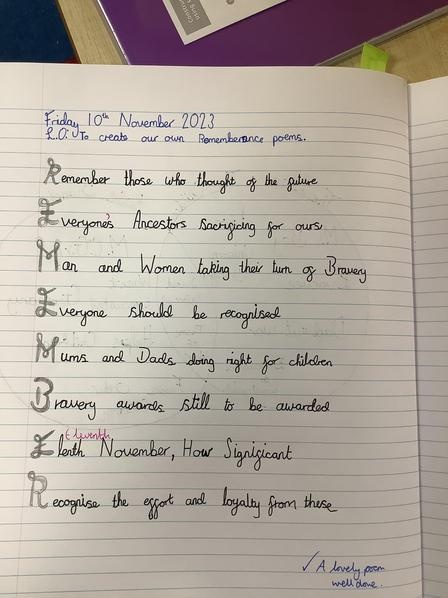 Friday 10th November 2023
L.O: To create our own Rememberance poems.
Remember those who thought of the future
Everyone's Ancestors Sacrificing for ours
Man and Women taking their turn of Bravery
Everyone should be recognised
Mums and Dads doing right for children
Bravery awards still to be awarded
Eleventh
Elenth November, How Significant
Recognise the effort and loyalty from these
✓ A lovely poem
well done.